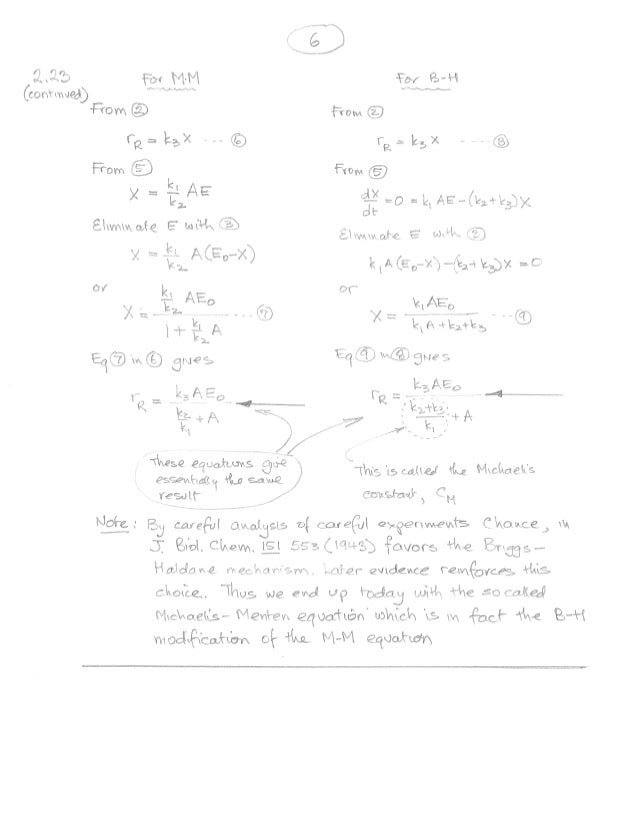 6
2.23
(continued)
For M.M
From ②
r_R = k₃X ---- ⑥
From ⑤
X = k₁/k₂ AE
Eliminate E with ③
X = k₁/k₂ A(E₀-X)
or
X = (k₁/k₂ AE₀)/(1 + k₁/k₂ A) ---- ⑦
Eq ⑦ in ⑥ gives
r_R = k₃AE₀/(k₂/k₁ + A)
For B-H
From ②
r_R = k₃X ---- ⑧
From ⑤
dX/dt = 0 = k₁ AE - (k₂+k₃)X
Eliminate E with ②
k₁A(E₀-X) - (k₂+k₃)X = 0
or
X = k₁AE₀/(k₁A + k₂+k₃) ---- ⑨
Eq ⑨ in ⑧ gives
r_R = k₃AE₀/((k₂+k₃)/k₁ + A)
These equations give
essentially the same
result
This is called the Michaelis
constant, C_M
Note: By careful analysis of careful experiments Chance, in
J. Biol. Chem. 151 553 (1943) favors the Briggs-
Haldane mechanism. Later evidence reinforces this
choice. Thus we end up today with the so called
Michaelis-Menten equation which is in fact the B-H
modification of the M-M equation